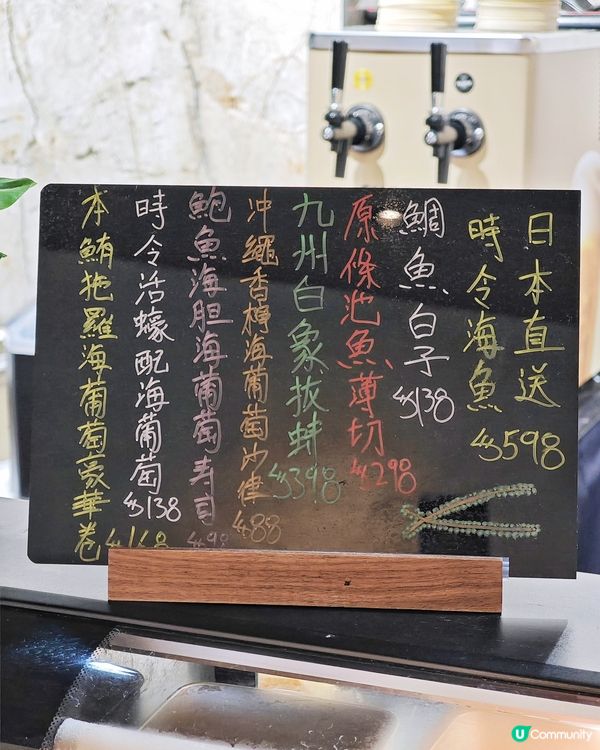 日本直送
時令海魚 $598
鯛魚白子 $138
原條池魚薄切 $298
九州白象拔蚌 $398
沖繩香檸海葡萄沙律 $88
鮑魚海胆海葡萄寿司 $98
時令活蠔配海葡萄 $138
本鮪拖羅海葡萄豪華卷 $168
U Community